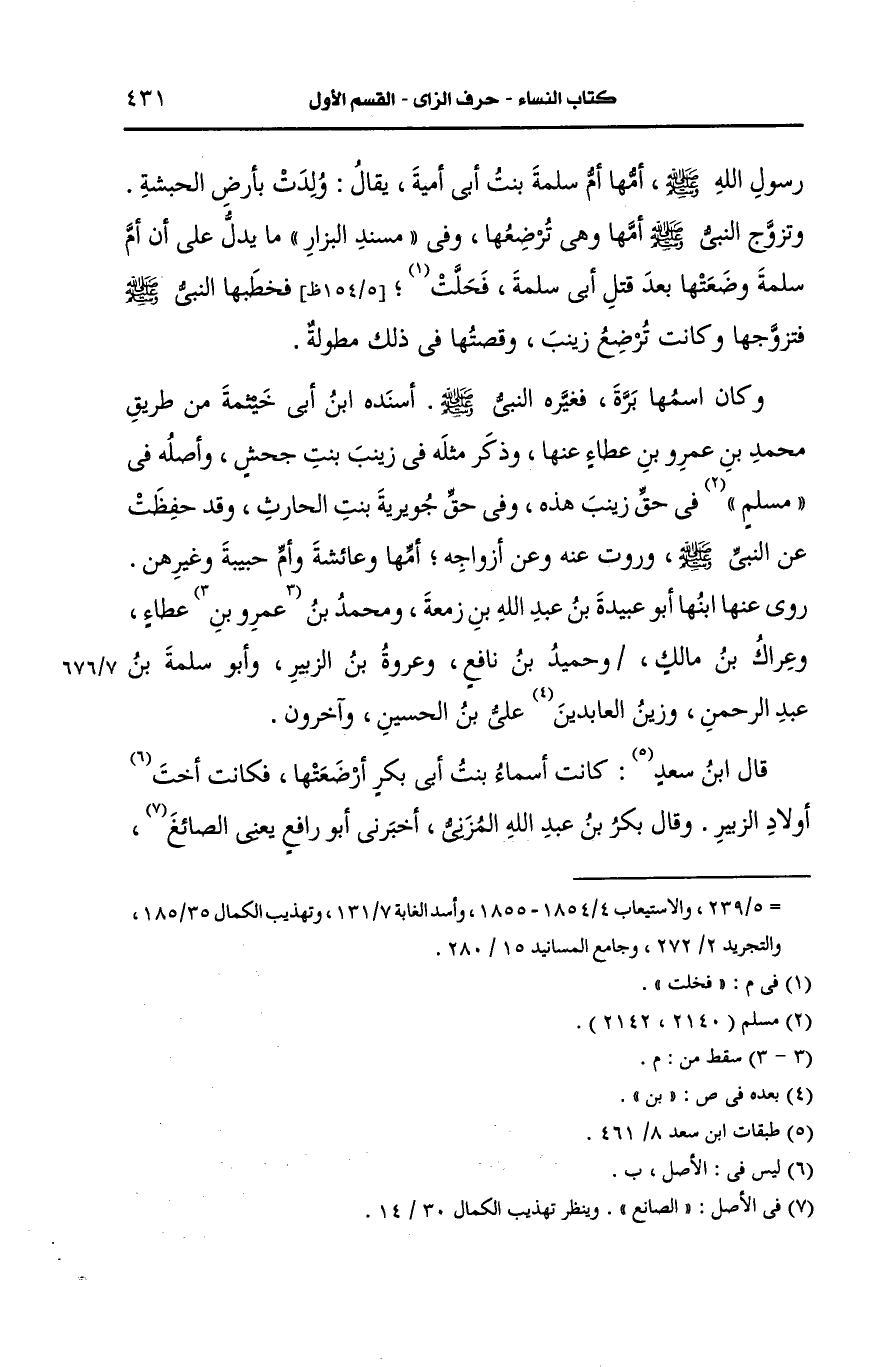 كتاب النساء - حرف الزاى - القسم الأول ٤٣١
رسولِ اللهِ ﷺ ، أمُّها أمُّ سلمةَ بنتُ أبى أميةَ ، يقالُ : وُلِدَتْ بأرضِ الحبشةِ .
وتزوَّج النبىُّ ﷺ أمَّها وهى تُرْضِعُها ، وفى « مسندِ البزارِ » ما يدلُّ على أن أمَّ
سلمةَ وضَعَتْها بعدَ قتلِ أبى سلمةَ ، فَحَلَّتْ(١) ؛ [١٥٤/٥ظ] فخطَبها النبىُّ ﷺ
فتزوَّجها وكانت تُرْضِعُ زينبَ ، وقصتُها فى ذلك مطولةٌ .
وكان اسمُها بَرَّةَ ، فغيَّره النبىُّ ﷺ . أسنَده ابنُ أبى خَيْثمةَ من طريقِ
محمدِ بنِ عمرِو بنِ عطاءٍ عنها ، وذكَر مثلَه فى زينبَ بنتِ جحشٍ ، وأصلُه فى
« مسلمٍ »(٢) فى حقِّ زينبَ هذه ، وفى حقِّ جُويريةَ بنتِ الحارثِ ، وقد حفِظَتْ
عن النبىِّ ﷺ ، وروت عنه وعن أزواجِه ؛ أمِّها وعائشةَ وأمِّ حبيبةَ وغيرِهن .
روى عنها ابنُها أبو عبيدةَ بنُ عبدِ اللهِ بنِ زمعةَ ، ومحمدُ بنُ (٣عمرِو بنِ٣) عطاءٍ ،
وعِراكُ بنُ مالكٍ ، / وحميدُ بنُ نافعٍ ، وعروةُ بنُ الزبيرِ ، وأبو سلمةَ بنُ ٦٧٦/٧
عبدِ الرحمنِ ، وزينُ العابدينَ(٤) علىُّ بنُ الحسينِ ، وآخرون .
قال ابنُ سعدٍ(٥) : كانت أسماءُ بنتُ أبى بكرٍ أرْضَعَتْها ، فكانت أختَ(٦)
أولادِ الزبيرِ . وقال بكرُ بنُ عبدِ اللهِ المُزَنِىُّ ، أخبَرنى أبو رافعٍ يعنِى الصائغَ(٧) ،
= ٢٣٩/٥ ، والاستيعاب ١٨٥٤/٤ - ١٨٥٥ ، وأسد الغابة ١٣١/٧ ، وتهذيب الكمال ١٨٥/٣٥ ،
والتجريد ٢/ ٢٧٢ ، وجامع المسانيد ١٥ / ٢٨٠ .
(١) فى م : « فخلت » .
(٢) مسلم ( ٢١٤٠ ، ٢١٤٢ ) .
(٣ - ٣) سقط من : م .
(٤) بعده فى ص : « بن » .
(٥) طبقات ابن سعد ٨/ ٤٦١ .
(٦) ليس فى : الأصل ، ب .
(٧) فى الأصل : « الصانع » . وينظر تهذيب الكمال ٣٠ / ١٤ .